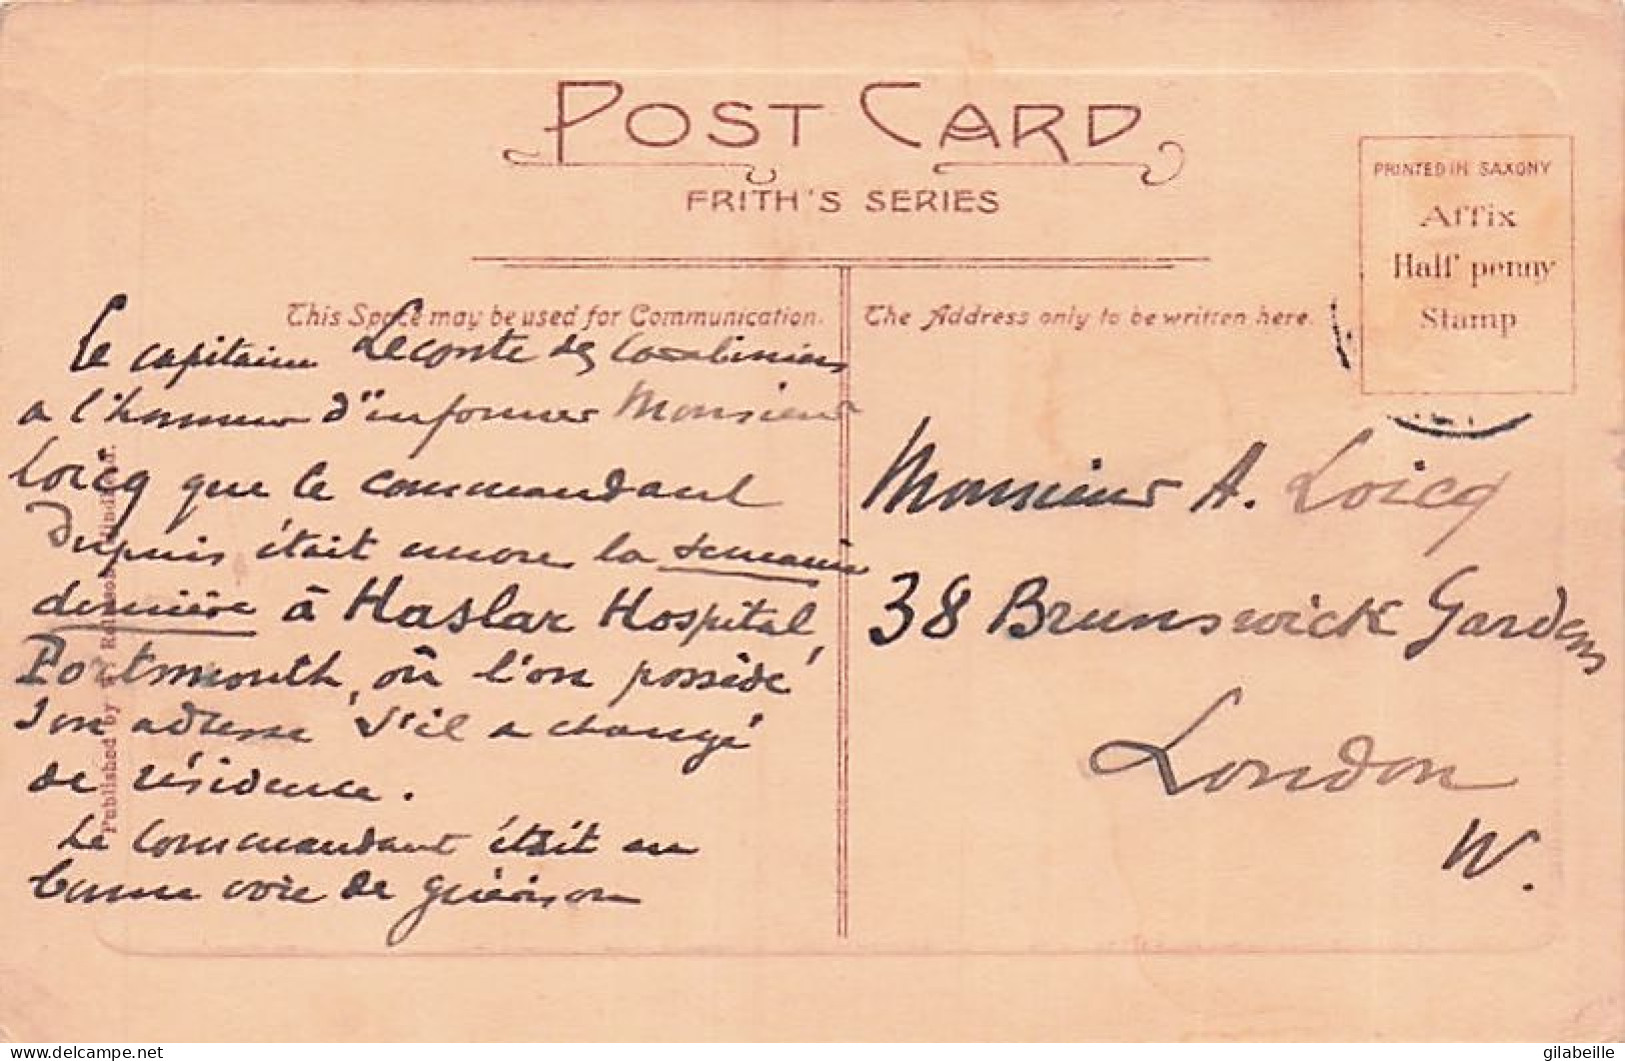 POST CARD
FRITH'S SERIES
PRINTED IN SAXONY
Affix
Half penny
Stamp
This Space may be used for Communication.
The Address only to be written here.
Le capitaine Leconte des Carabiniers
a l'honneur d'informer Monsieur
Loicq que le commandant
Dupuis était encore la semaine
dernière à Haslar Hospital,
Portmouth, où l'on possède
son adresse s'il a changé
de résidence.
Le commandant était en
bonne voie de guérison
Monsieur A. Loicq
38 Brunswick Gardens
London
W.
Published by
delcampe.net
gilabeille